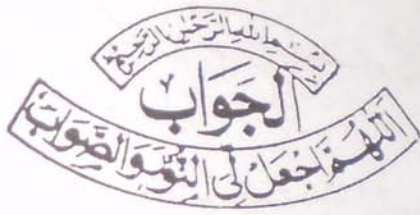 بسم الله الرحمن الرحيم
الجَوَاب
اَللّٰهُمَّ اجْعَلْ لِى النُّوْرَ وَالصَّوَابَ